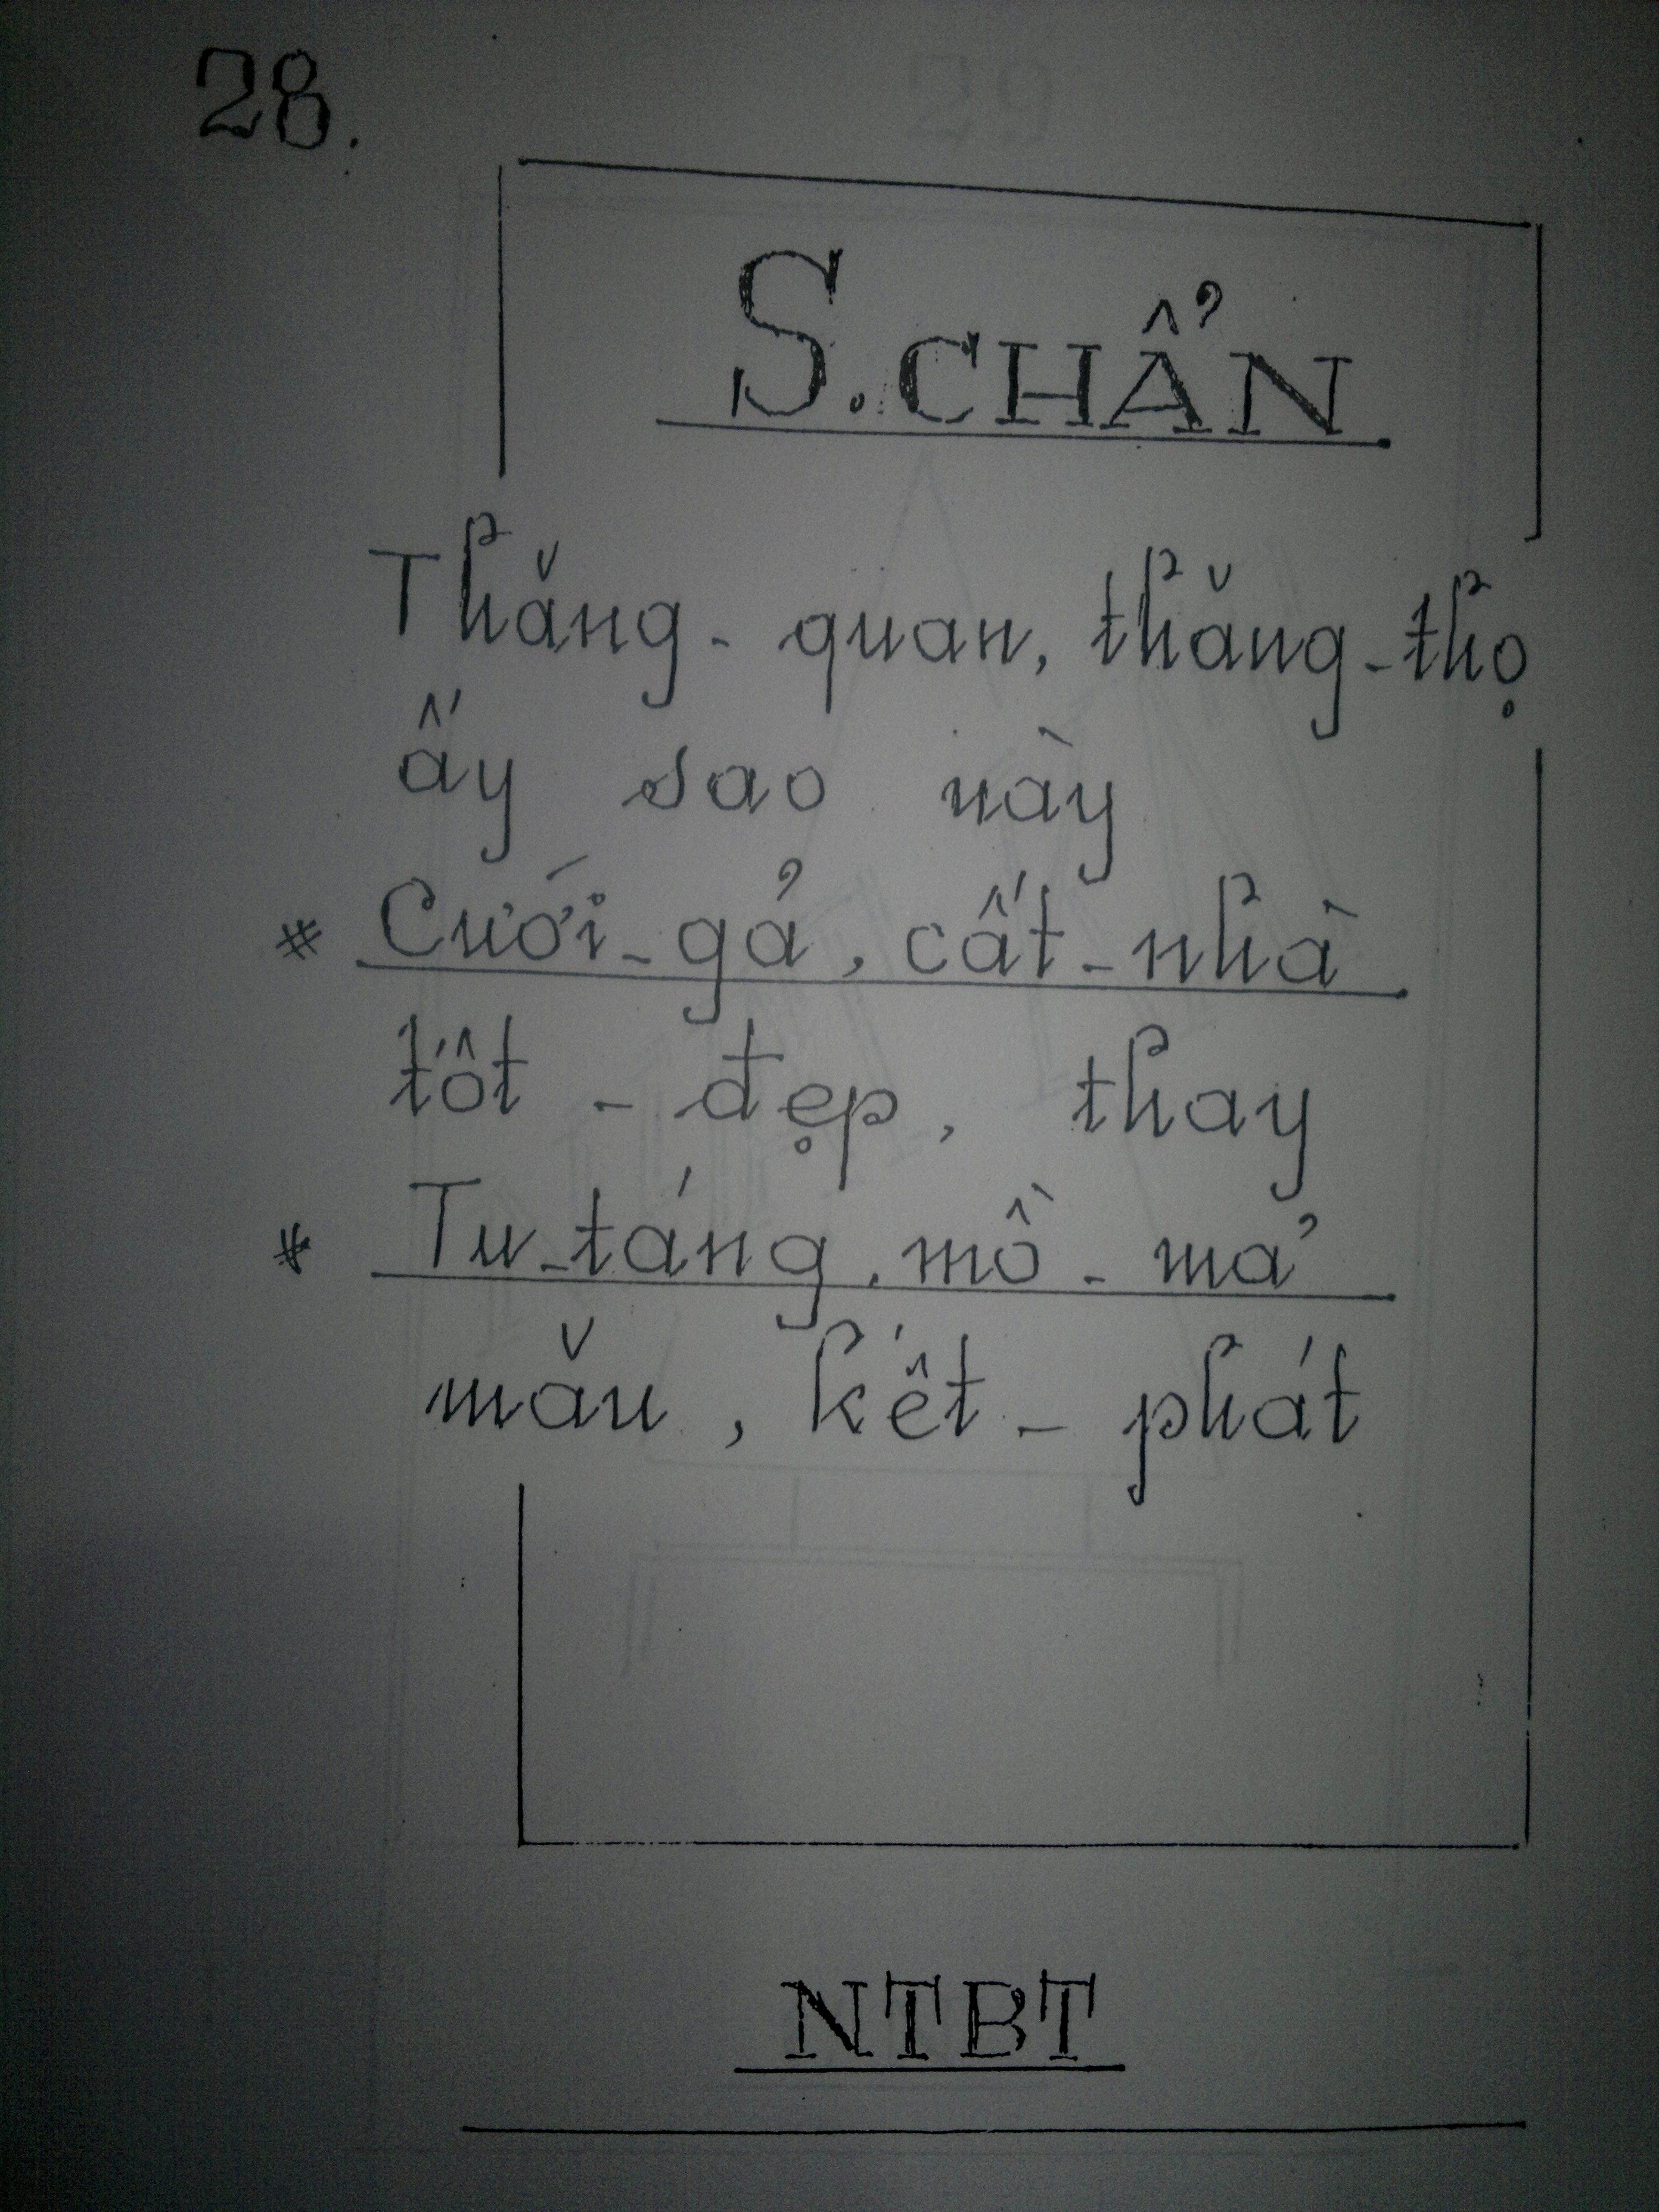 28.
S. CHẨN
Thăng - quan, thăng - thọ
ấy sao này
* Cưới - gả, cất - nhà
tốt - đẹp, thay
* Tu - táng, mồ - mả
măn, kết - phát
NTBT